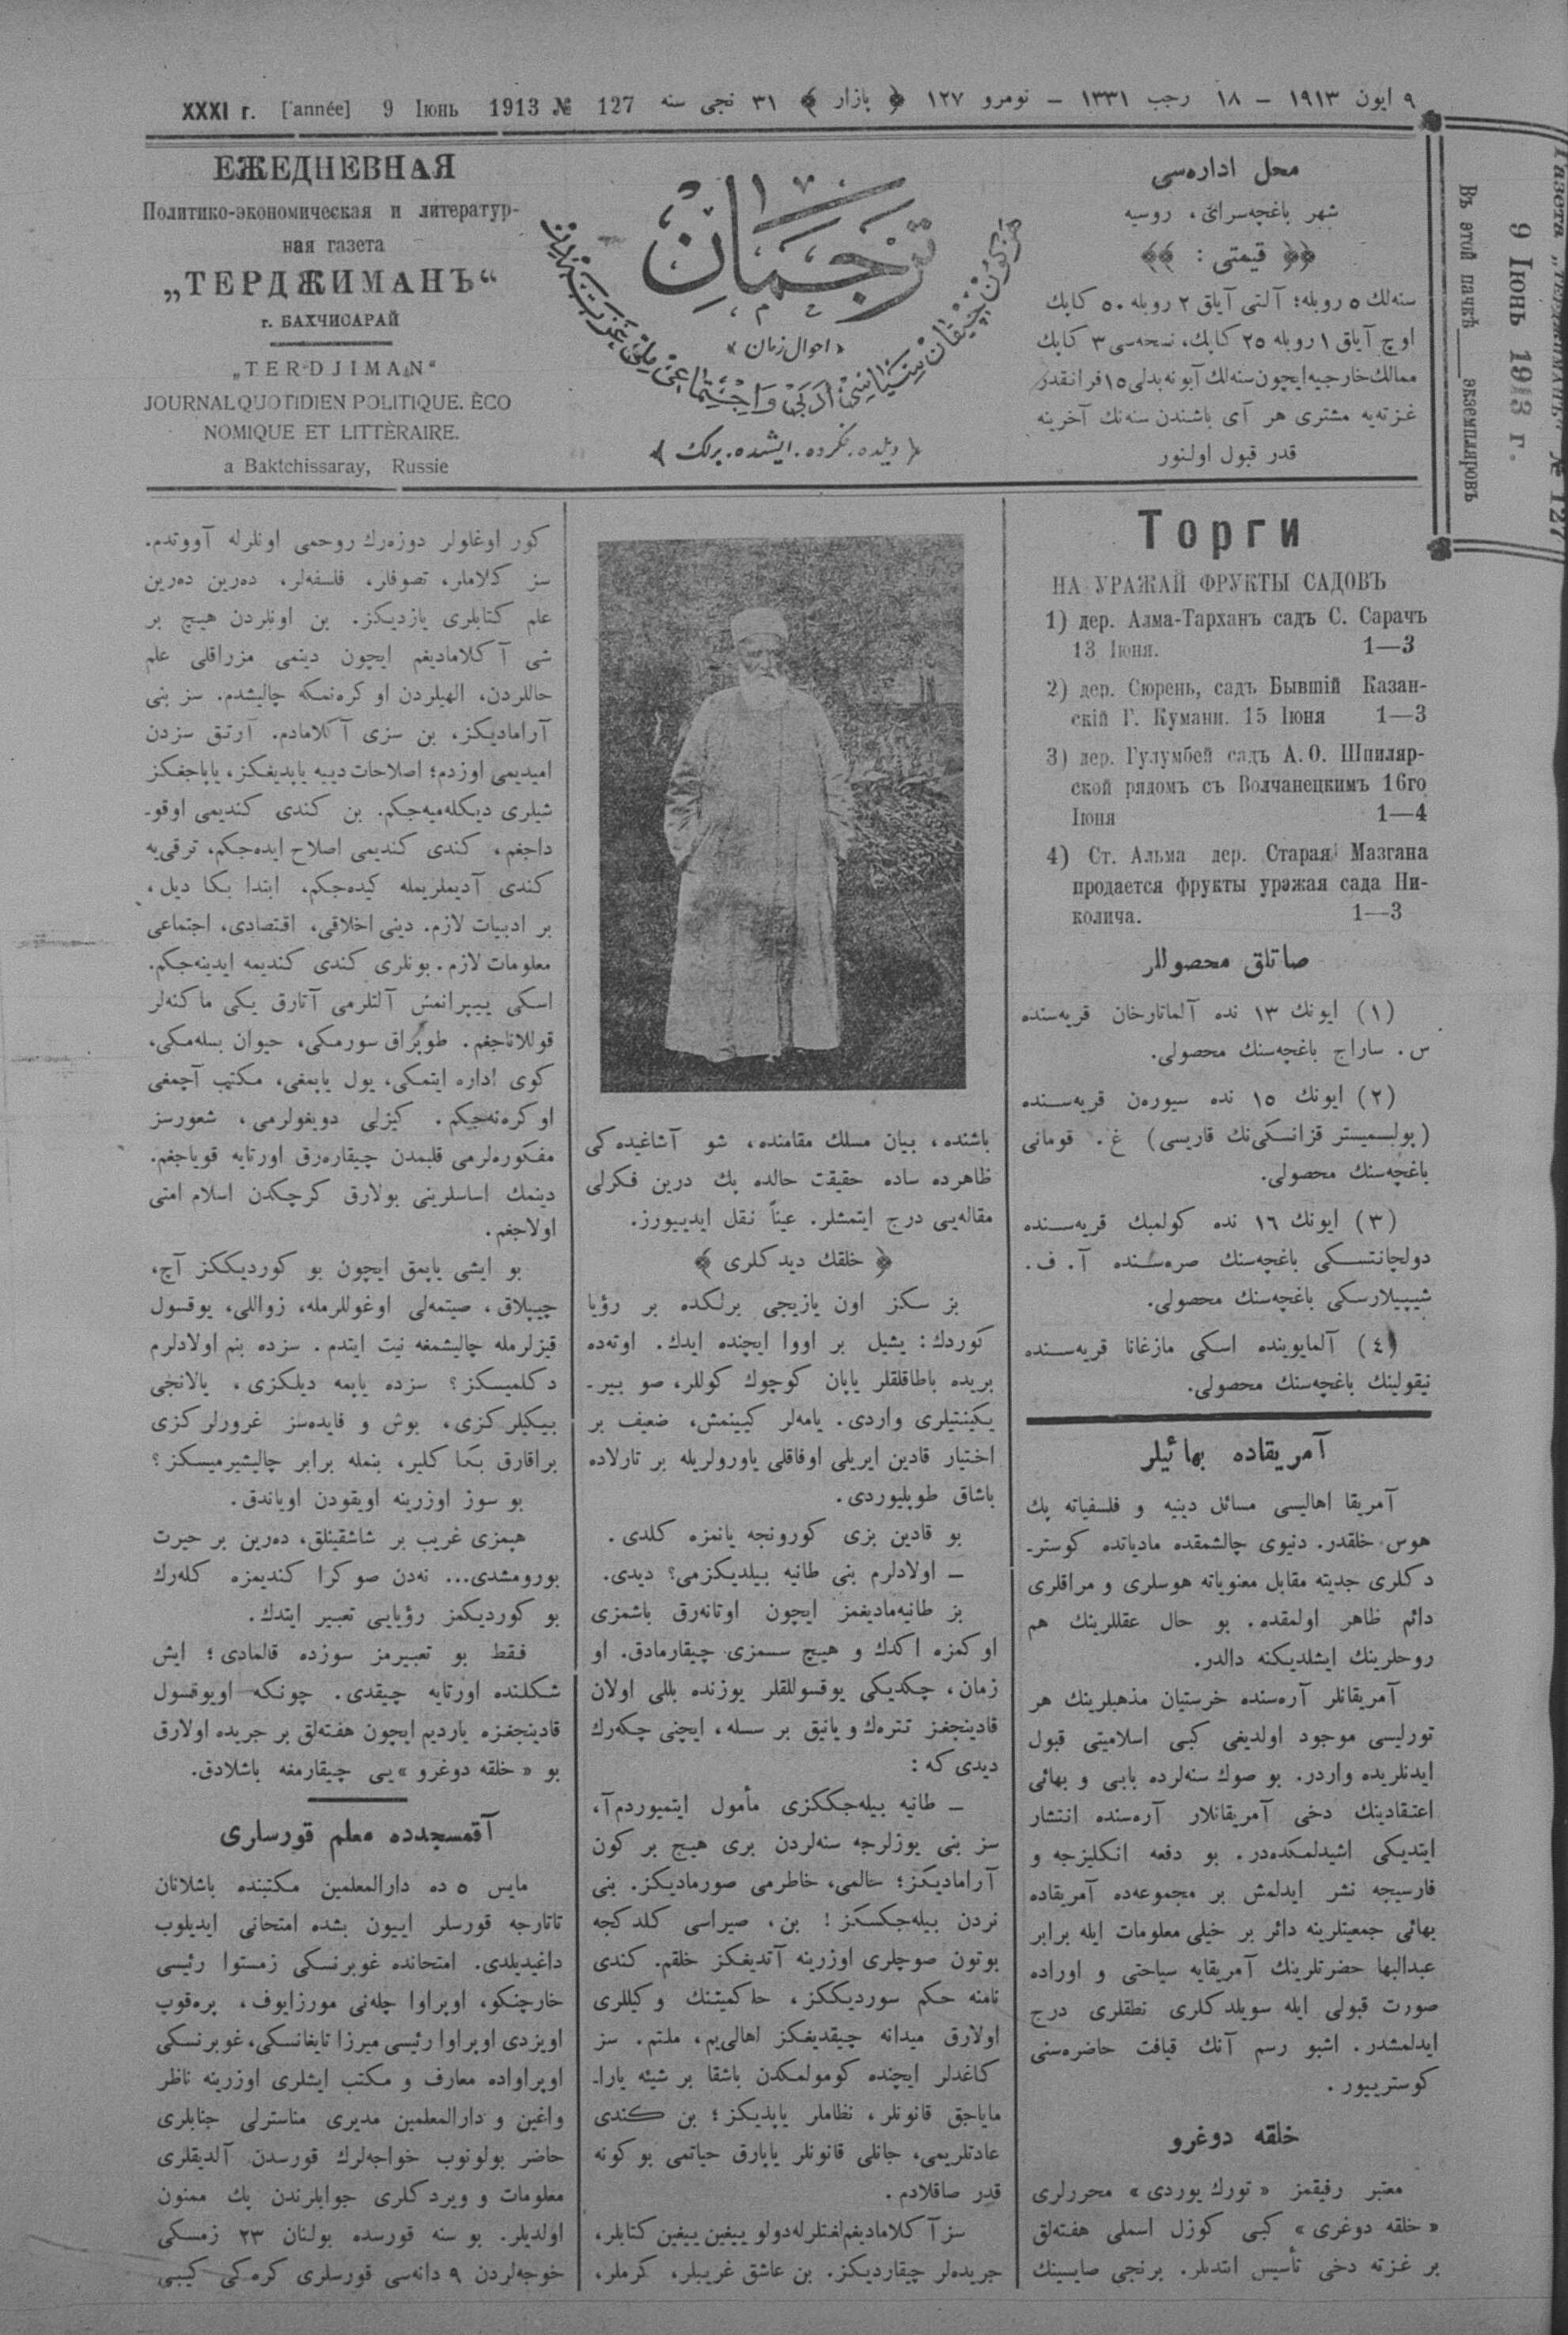 XXXI г. [année] 9 Іюнь 1913 № 127
٩ ایون ١٩١٣ – ١٨ رجب ١٣٣١ – نومرو ١٢٧ ﴿ بازار ﴾ ٣١ نجی سنه
ЕЖЕДНЕВНАЯ
Политико-экономическая и литератур-
ная газета
„ТЕРДЖИМАНЪ“
г. БАХЧИСАРАЙ
„TERDJIMAN“
JOURNAL QUOTIDIEN POLITIQUE. ÈCO
NOMIQUE ET LITTÈRAIRE.
a Baktchissaray, Russie
ترجمان
« احوال زمان »
﴿ دیلده، فکرده، ایشده، برلك ﴾
محل اداره‌سی
شهر باغچه‌سرای، روسیه
﴿﴿ قیمتی : ﴾﴾
سنه‌لك ٥ روبله؛ آلتی آیلق ٢ روبله ٥٠ کاپك
اوچ آیلق ١ روبله ٢٥ کاپك، نسخه‌سی ٣ کاپك
ممالك خارجیه ایچون سنه‌لك آبونه بدلی ١٥ فرانقدر
غزته‌یه مشتری هر آی باشندن سنه‌نك آخرینه
قدر قبول اولنور
Въ этой пачкѣ экземпляровъ
9 Іюнь 1913 г.
Газета „ТЕРДЖИМАНЪ“ № 127
Торги
НА УРАЖАЙ ФРУКТЫ САДОВЪ
1) дер. Алма-Тарханъ садъ С. Сарачъ
13 Іюня. 1—3
2) дер. Сюрень, садъ Бывшій Казан-
скій Г. Кумани. 15 Іюня 1—3
3) дер. Гулумбей садъ А. О. Шпиляр-
ской рядомъ съ Волчанецкимъ 16го
Іюня 1—4
4) Ст. Альма дер. Старая Мазгана
продается фрукты урэжая сада Ни-
колича. 1—3
صاتلق محصوللر
(١) ایونك ١٣ نده آلماتارخان قریه‌سنده
س. ساراج باغچه‌سنك محصولی.
(٢) ایونك ١٥ نده سیورەن قریه‌سنده
(پولیسمیستر قزانسکی‌نك قاریسی) غ. قومانی
باغچه‌سنك محصولی.
(٣) ایونك ١٦ نده کولمبك قریه‌سنده
دولچانتسکی باغچه‌سنك صره‌سنده آ. ف.
شیپیلارسکی باغچه‌سنك محصولی.
(٤) آلمابوینده اسکی مازغانا قریه‌سنده
نیقولینك باغچه‌سنك محصولی.
آمریقاده بهائیلر
آمریقا اهالیسی مسائل دینیه و فلسفیاته پك
هوس خلقدر. دنیوی چالشمقده مادیاتده کوستر-
دکلری جدیته مقابل معنویاته هوسلری و مراقلری
دائم ظاهر اولمقده. بو حال عقللرینك هم
روحلرینك ایشلدیکنه دالدر.
آمریقانلر آره‌سنده خرستیان مذهبلرینك هر
تورلیسی موجود اولدیغی کبی اسلامیتی قبول
ایدنلریده واردر. بو صوك سنه‌لرده بابی و بهائی
اعتقادینك دخی آمریقانلار آره‌سنده انتشار
ایتدیکی اشیدلمکده‌در. بو دفعه انکلیزجه و
فارسیجه نشر ایدلمش بر مجموعه‌ده آمریقاده
بهائی جمعیتلرینه دائر بر خیلی معلومات ایله برابر
عبدالبها حضرتلرینك آمریقایه سیاحتی و اوراده
صورت قبولی ایله سویلدکلری نطقلری درج
ایدلمشدر. اشبو رسم آنك قیافت حاضره‌سنی
کوسترییور.
خلقه دوغرو
معتبر رفیقمز «تورك یوردی» محررلری
«خلقه دوغری» کبی کوزل اسملی هفته‌لق
بر غزته دخی تأسیس ایتدیلر. برنجی صایسینك
باشنده، بیان مسلك مقامنده، شو آشاغیده‌کی
ظاهرده ساده حقیقت حالده پك درین فکرلی
مقاله‌یی درج ایتمشلر. عیناً نقل ایدییورز.
﴿ خلقك دیدکلری ﴾
بز سکز اون یازیجی برلکده بر رؤیا
کوردك: یشیل بر اووا ایچنده ایدك. اوته‌ده
بریده باطاقلقلر یاپان کوچوك کوللر، صو بیر-
یکینتیلری واردی. یامه‌لر کیینمش، ضعیف بر
اختیار قادین ایریلی اوفاقلی یاورولریله بر تارلاده
باشاق طوپلیوردی.
بو قادین بزی کورونجه یانمزه کلدی.
– اولادلرم بنی طانیه بیلدیکزمی؟ دیدی.
بز طانیه‌مادیغمز ایچون اوتانه‌رق باشمزی
اوکمزه اکدك و هیچ سسمزی چیقارمادق. او
زمان، چکدیکی یوقسوللقلر یوزنده بللی اولان
قادینجغز تتره‌ك و یانیق بر سسله، ایچنی چکه‌رك
دیدی که:
– طانیه بیله‌جککزی مأمول ایتمیوردم آ،
سز بنی یوزلرجه سنه‌لردن بری هیچ بر کون
آرامادیکز؛ حالمی، خاطرمی صورمادیکز. بنی
نردن بیله‌جکسکز! بن، صیراسی کلدکجه
بوتون صوچلری اوزرینه آتدیغکز خلقم. کندی
نامنه حکم سوردیککز، حاکمیتنك وکیللری
اولارق میدانه چیقدیغکز اهالی‌یم، ملتم. سز
کاغدلر ایچنده کومولمکدن باشقا بر شیئه یارا-
مایاجق قانونلر، نظاملر یاپدیکز؛ بن کندی
عادتلریمی، جانلی قانونلر یاپارق حیاتمی بو کونه
قدر صاقلادم.
سز آکلامادیغم لغتلرله دولو ییغین ییغین کتابلر،
جریده‌لر چیقاردیکز. بن عاشق غریبلر، کرملر،
کور اوغلولر دوزه‌رك روحمی اونلرله آووتدم.
سز کلاملر، تصوفلر، فلسفه‌لر، ده‌رین ده‌رین
علم کتابلری یازدیکز. بن اونلردن هیچ بر
شی آکلامادیغم ایچون دینمی مزراقلی علم
حاللردن، الهیلردن اوکره‌نمکه چالیشدم. سز بنی
آرامادیکز، بن سزی آکلامادم. آرتق سزدن
امیدیمی اوزدم؛ اصلاحات دییه یاپدیغکز، یاپاجغکز
شیلری دیکله‌میه‌جکم. بن کندی کندیمی اوقو-
داجغم، کندی کندیمی اصلاح ایده‌جکم، ترقی‌یه
کندی آدیملریمله کیده‌جکم، ابتدا بکا دیل،
بر ادبیات لازم. دینی اخلاقی، اقتصادی، اجتماعی
معلومات لازم. بونلری کندی کندیمه ایدینه‌جکم.
اسکی ییپرانمش آلتلرمی آتارق یکی ماکنه‌لر
قوللاناجغم. طوپراق سورمکی، حیوان بسله‌مکی،
کوی اداره ایتمکی، یول یاپمغی، مکتب آچمغی
اوکره‌نه‌جکم. کیزلی دویغولرمی، شعورسز
مفکوره‌لرمی قلبمدن چیقاره‌رق اورتایه قویاجغم.
دینمك اساسلرینی بولارق کرچکدن اسلام امتی
اولاجغم.
بو ایشی یاپمق ایچون بو کوردیککز آچ،
چیپلاق، صیتمه‌لی اوغوللرمله، زواللی، یوقسول
قیزلرمله چالیشمغه نیت ایتدم. سزده بنم اولادلرم
دکلمیسکز؟ سزده یاپمه دیلکزی، یالانجی
بیکیلرکزی، بوش و فایده‌سز غرورلرکزی
براقارق بکا کلیر، بنمله برابر چالیشیرمیسکز؟
بو سوز اوزرینه اویقودن اویاندق.
هپمزی غریب بر شاشقینلق، ده‌رین بر حیرت
بورومشدی... نه‌دن صوکرا کندیمزه کله‌رك
بو کوردیکمز رؤیایی تعبیر ایتدك.
فقط بو تعبیرمز سوزده قالمادی؛ ایش
شکلنده اورتایه چیقدی. چونکه اویوقسول
قادینجغزه یاردیم ایچون هفته‌لق بر جریده اولارق
بو «خلقه دوغرو»یی چیقارمغه باشلادق.
آقمسجدده معلم قورسلری
مایس ٥ ده دارالمعلمین مکتبنده باشلانان
تاتارجه قورسلر ایییون بشده امتحانی ایدیلوب
داغیدیلدی. امتحانده غوبرنسکی زمستوا رئیسی
خارچنکو، اوپراوا چله‌نی مورزایوف، پره‌قوپ
اویزدی اوپراوا رئیسی میرزا تایغانسکی، غوبرنسکی
اوپراواده معارف و مکتب ایشلری اوزرینه ناظر
واغین و دارالمعلمین مدیری مناسترلی جنابلری
حاضر بولونوب خواجه‌لرك قورسدن آلدیقلری
معلومات و ویردکلری جوابلرندن پك ممنون
اولدیلر. بو سنه قورسده بولنان ٢٣ زمسکی
خوجه‌لردن ٩ دانه‌سی قورسلری کره‌کی کیبی